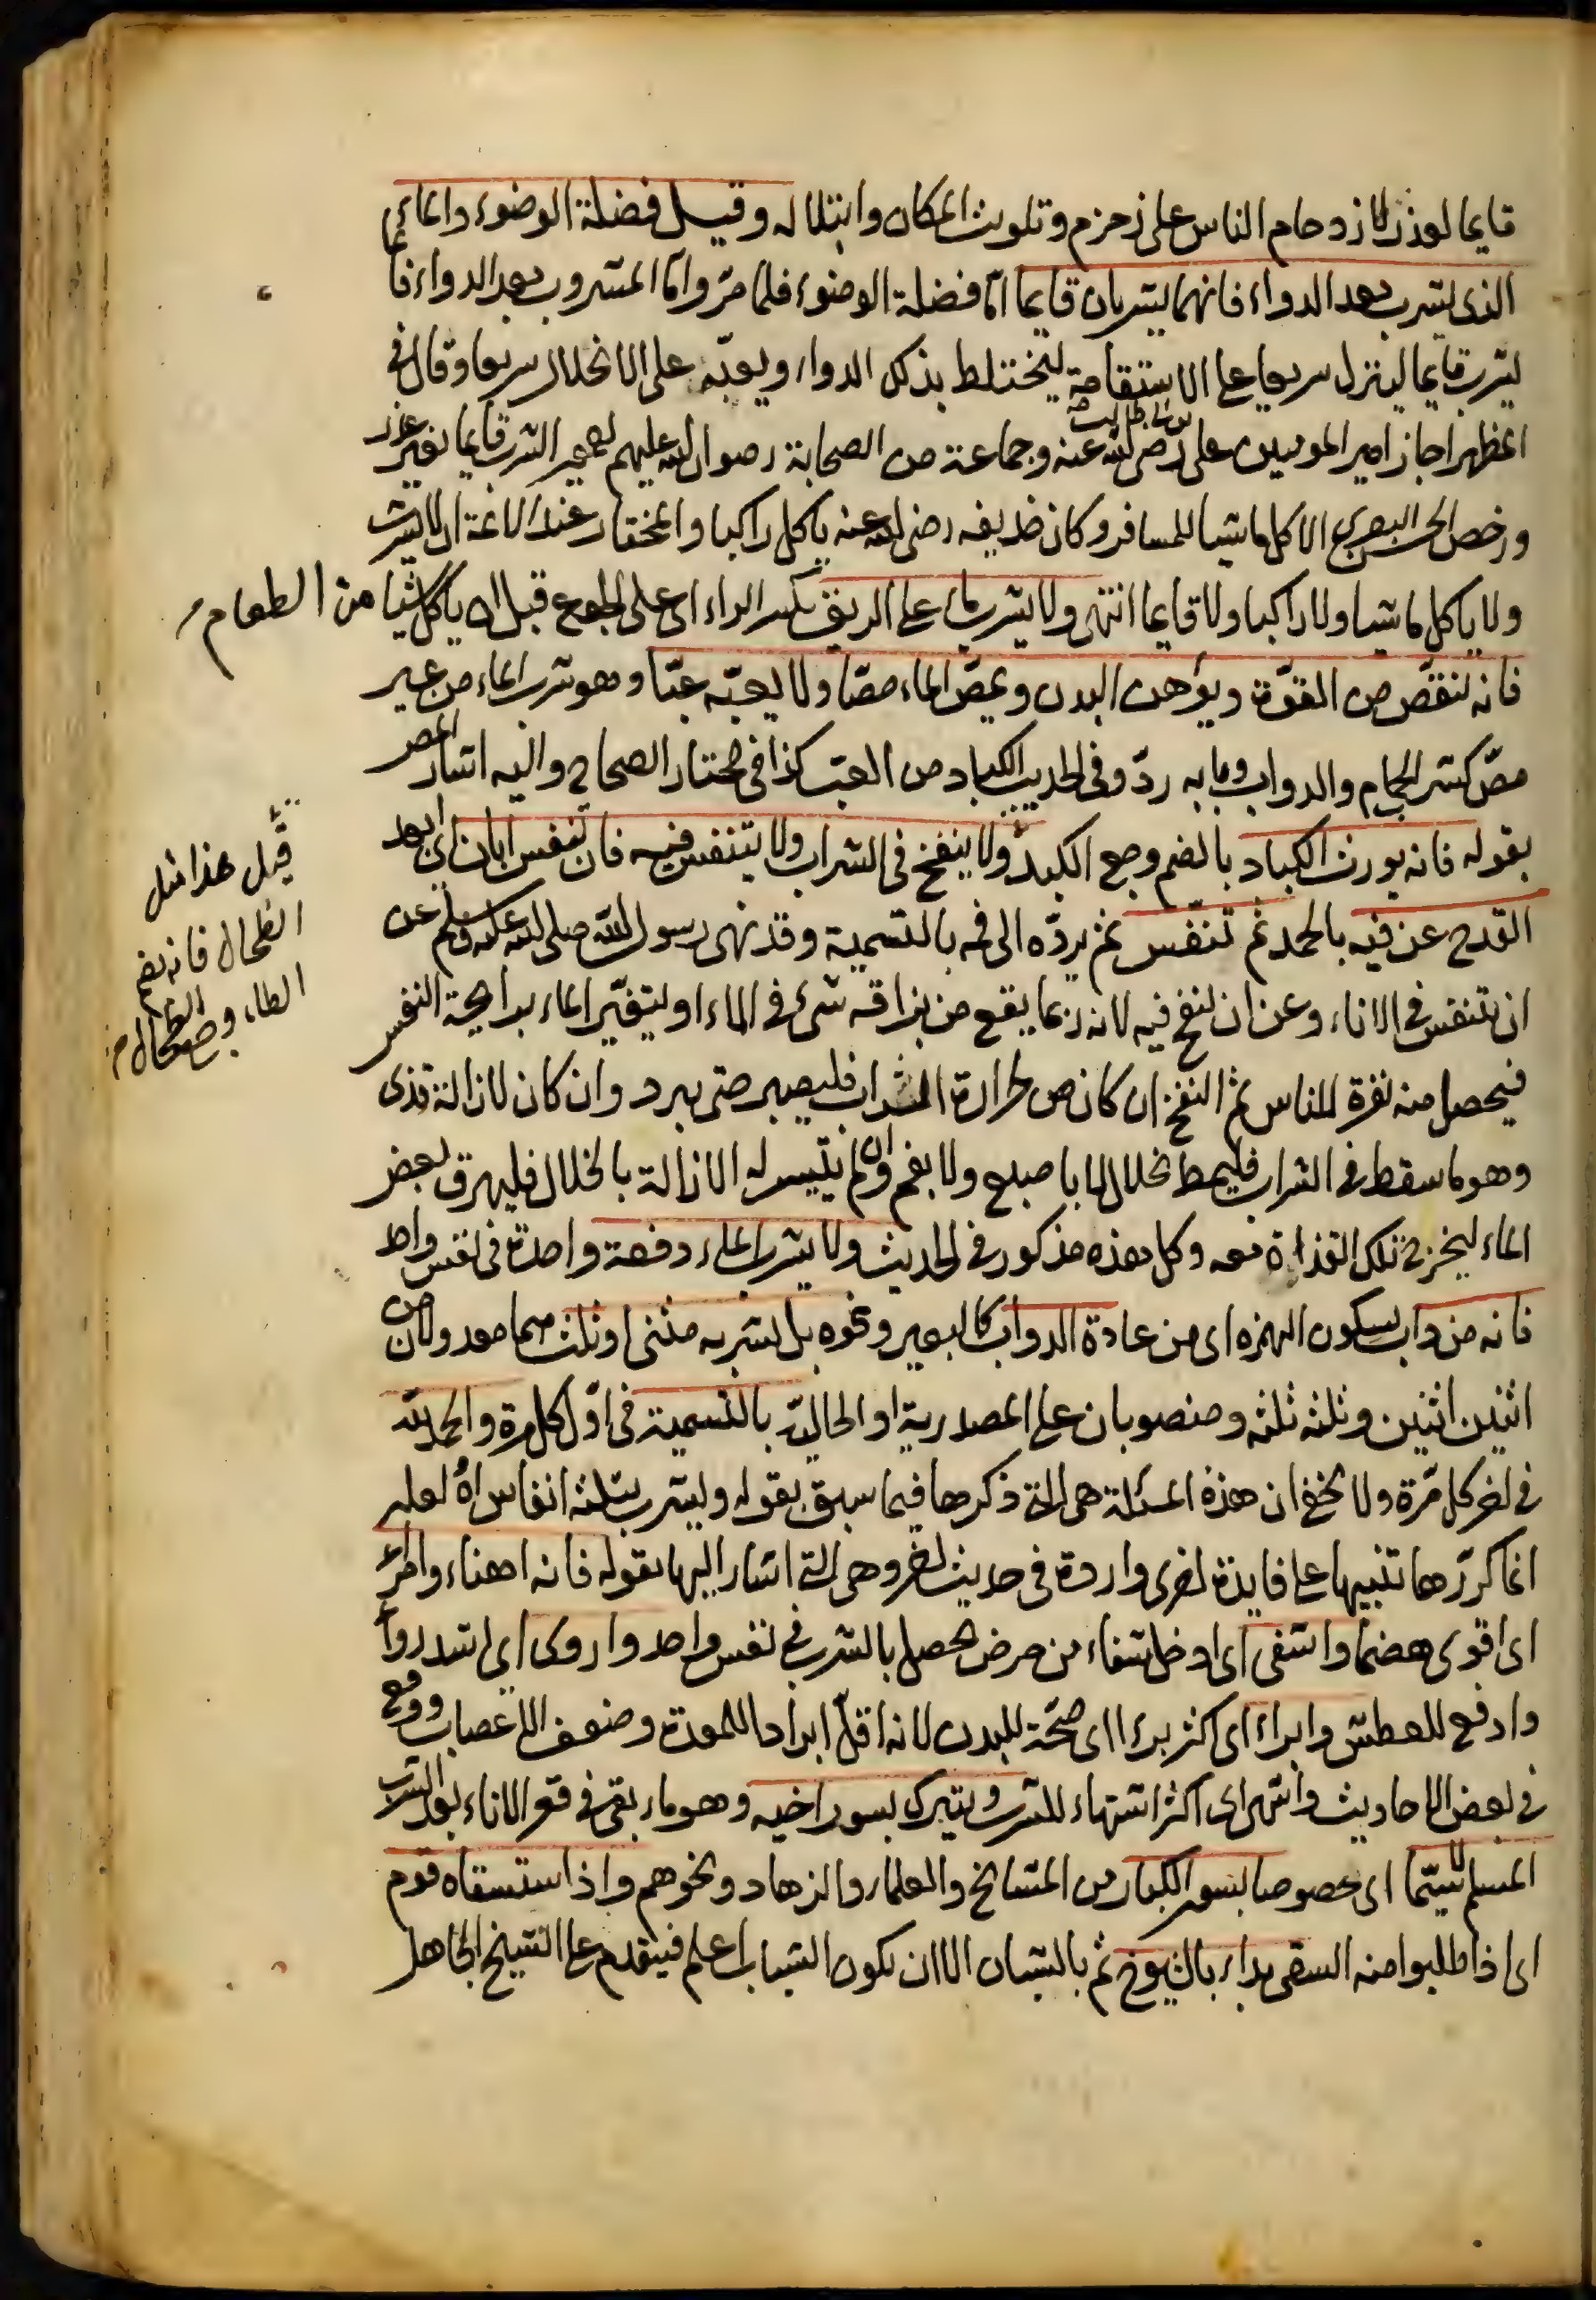 قايما لعذر لازدحام الناس على زمزم وتلويث المكان وابتلاله وقيل فضلة الوضوء والماء
الذى يشرب بعد الدواء فانهما يشربان قايما امّا فضلة الوضوء فلما مرّ وامّا المشروب بعد الدواء فانما
يشرب قايما لينزل سريعا على الاستقامة ليختلط بذلك الدواء ويعينه على الانحلال سريعا وقال فى
المظهر اجاز امير المومنين على بن ابى طالب رضى الله عنه وجماعة من الصحابة رضوان الله عليهم الشرب قايما بغير عذر
ورخص الحسن البصرى الاكل ماشيا للمسافر وكان حذيفه رضى الله عنه ياكل راكبا والمختار عند الائمة ان لا يشرب
ولا ياكل ماشيا ولا راكبا ولا قايما انتهى ولا يشرب الماء على الريق بكسر الراء اى على الجوع قبل ان ياكل شيا من الطعام
فانه ينقص من القوّة ويوهن البدن ويمصّ الماء مصّا ولا يعبّه عبّا وهو شرب الماء من غير
مصّ كشرب الحمام والدواب وبابه ردّ وفى الحديث الكباد من العبّ كذا فى مختار الصحاح واليه اشار المص
بقوله فانه يورث الكباد بالضم وجع الكبد ولا ينفخ فى الشراب ولا يتنفس فيه فان تنفس ابان اى ابعد
القدح عن فيه بالحمد ثم تنفس ثم يردّه الى فمه بالتسمية وقد نهى رسول الله صلى الله عليه وسلم عن
ان يتنفس فى الاناء وعن ان ينفخ فيه لانه ربما يقع من بزاقه شئ فى الماء او ليتغيّر الماء برايحة النفس
فيحصل منه نفرة للناس ثم النفخ ان كان من حرارة الشراب فليصبر حتى يبرد وان كان لازالة قذى
وهو ما سقط فى الشراب فليمط بخلال لا باصبع ولا بفم وان لم يتيسر له الازالة بالخلال فليهرق بعض
الماء ليخرج تلك القذارة معه وكل هذه مذكور فى الحديث ولا يشرب الماء دفعة واحدة فى نفس واحد
فانه من داب بسكون الهمزه اى من عادة الدواب كالبعير ونحوه بل يشربه مثنى او ثلث هما معدولان من
اثنين اثنين وثلثه ثلثه ومنصوبان على المصدرية او الحاليّة بالتسمية فى اوّل كل مرة والحمد لله
فى اخر كل مرّة ولا يخفى ان هذه المسئلة هى التى ذكرها فيما سبق بقوله ويشرب بثلثة انفاس اه لعله
انما كرّرها تنبيها على فايدة اخرى واردة فى حديث اخر وهى التى اشار اليها بقوله فانه اهناء وامرئ
اى اقوى هضما واشفى اى ادخل شفاء من مرض يحصل بالشرب فى نفس واحد واروى اى اشد رواء
وادفع للعطش وابراء اى اكثر برءا اى صحّة للبدن لانه اقلّ ابرادا للمعدة وضعف الاعصاب ووقع
فى بعض الاحاديث واشهى اى اكثر اشتهاء للشرب ويتبرك بسور اخيه وهو ما بقى فى قعر الاناء بعد الشرب
المسلم لا سيّما اى خصوصا بسور الكبار من المشايخ والعلماء والزهاد ونحوهم واذا استسقاه قوم
اى اذا طلبوا منه السقى بداء بالشيوخ ثم بالشبان الا ان يكون الشباب اعلم فيتقدم على الشيخ الجاهل
قيل هذا مثل
الطحال فانه بضم
الطاء وجع الطحال